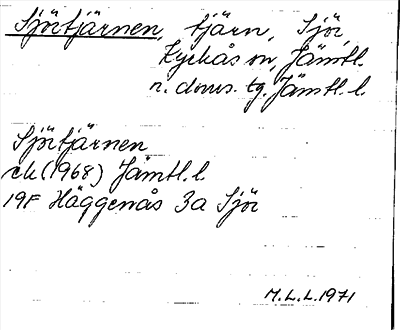 Sjörtjärnen, tjärn, Sjör,
Kyrkås sn, Jämtl.
n. doms. tg. Jämtl. l.
Sjörtjärnen
ek (1968) Jämtl. l.
19F Häggenås 3a Sjör
M.L.L. 1971